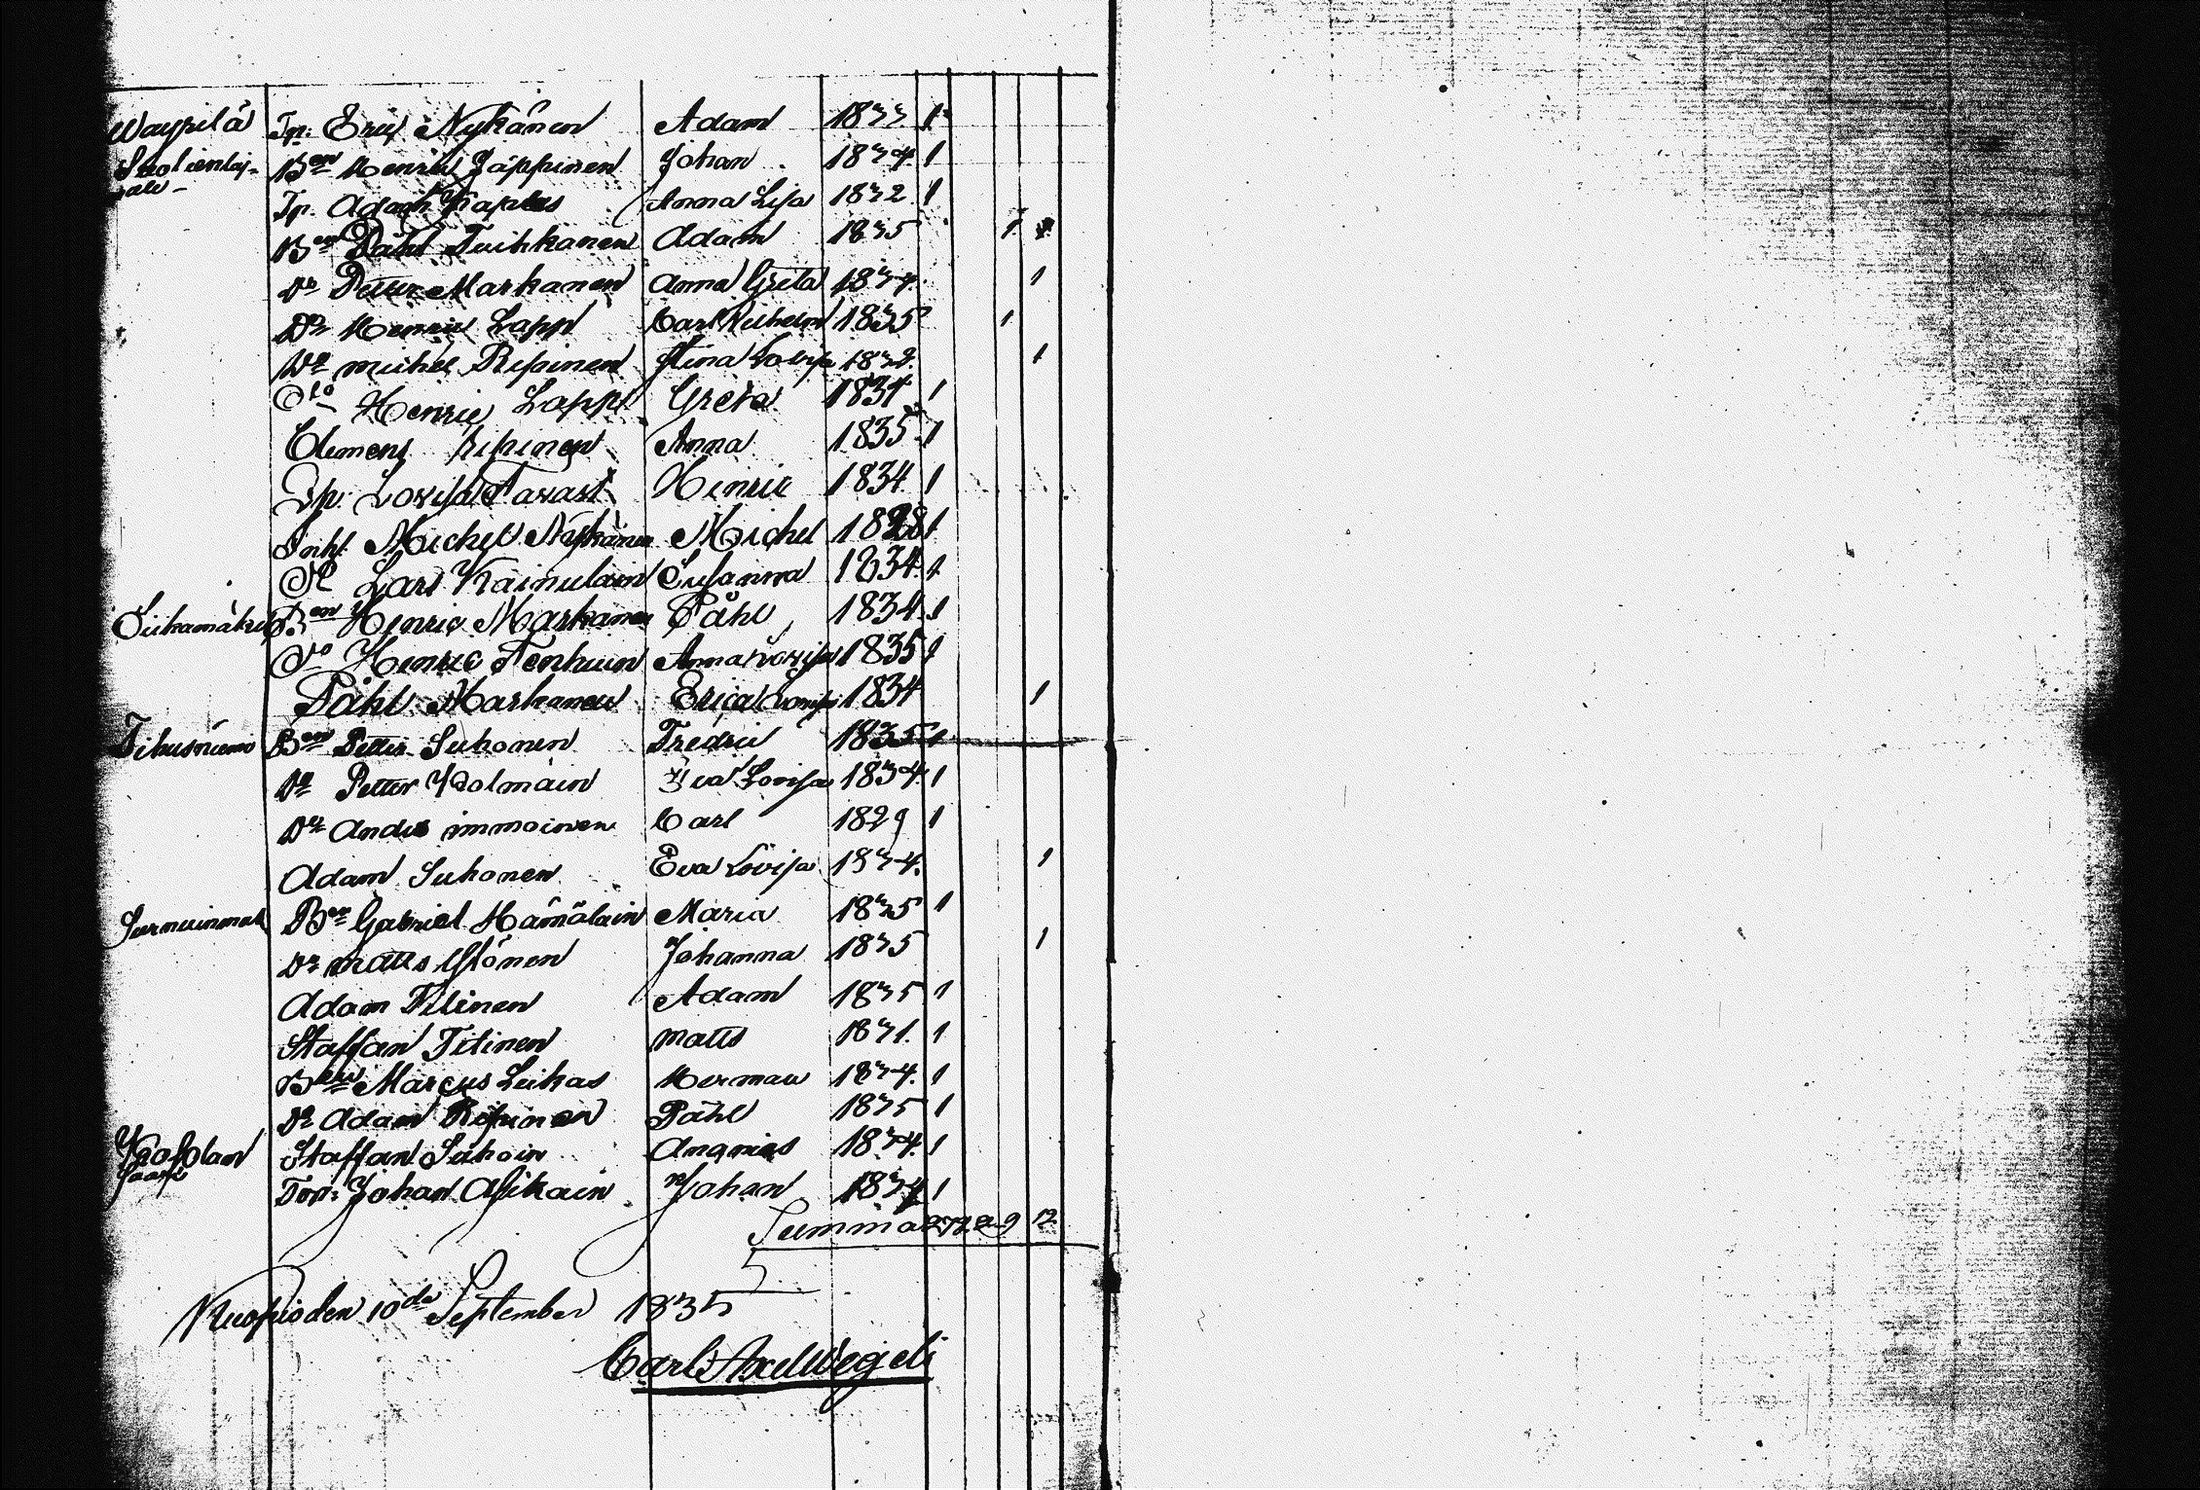 Tp. Eric Nykänen Adam 1833 1
Ben Henric Jäppinen Johan 1834 1
Tp. Adam Anna Lisa 1832 1
Ben Påhl Tuihkanen Adam 1835 1
Do Petter Markanen Anna Greta 1834 1
Do Henric Lapp Carl Wilhelm 1835 1
Do Michel Repoinen Stina Lovisa 1
Dto Henric Lapp Greta 1834 1
Clemens Anna 1835 1
Lovisa Tavast Henric 1834 1
Inh. Michel Michel 1828 1
Do Lars Kainulain Susanna 1834 1
Siikamäki Ben Henric Markanen Påhl 1834 1
Do Henric Tenhuin Anna Lovisa 1835 1
Påhl Markanen Erica Lovisa 1834 1
Tikusniemi Ben Petter Suhonen Fredric 1835 1
Do Petter Holmäin Eva Lovisa 1834 1
Do Anders immoinen Carl 1829 1
Adam Suhonen Eva Lovisa 1834 1
Ben Gabriel Hämäläin Maria 1835 1
Do Matts Ylönen Johanna 1835 1
Adam Titinen Adam 1835 1
Staffan Titinen Matts 1831 1
Marcus Leikas Herman 1834 1
Do Adam Påhl 1835 1
Staffan Suhoin Ananias 1834 1
Torp. Johan Asikain Johan 1834 1
Summa 272 2 9 12
Kuopio den 10de September 1835
Carl Axel Wegeli